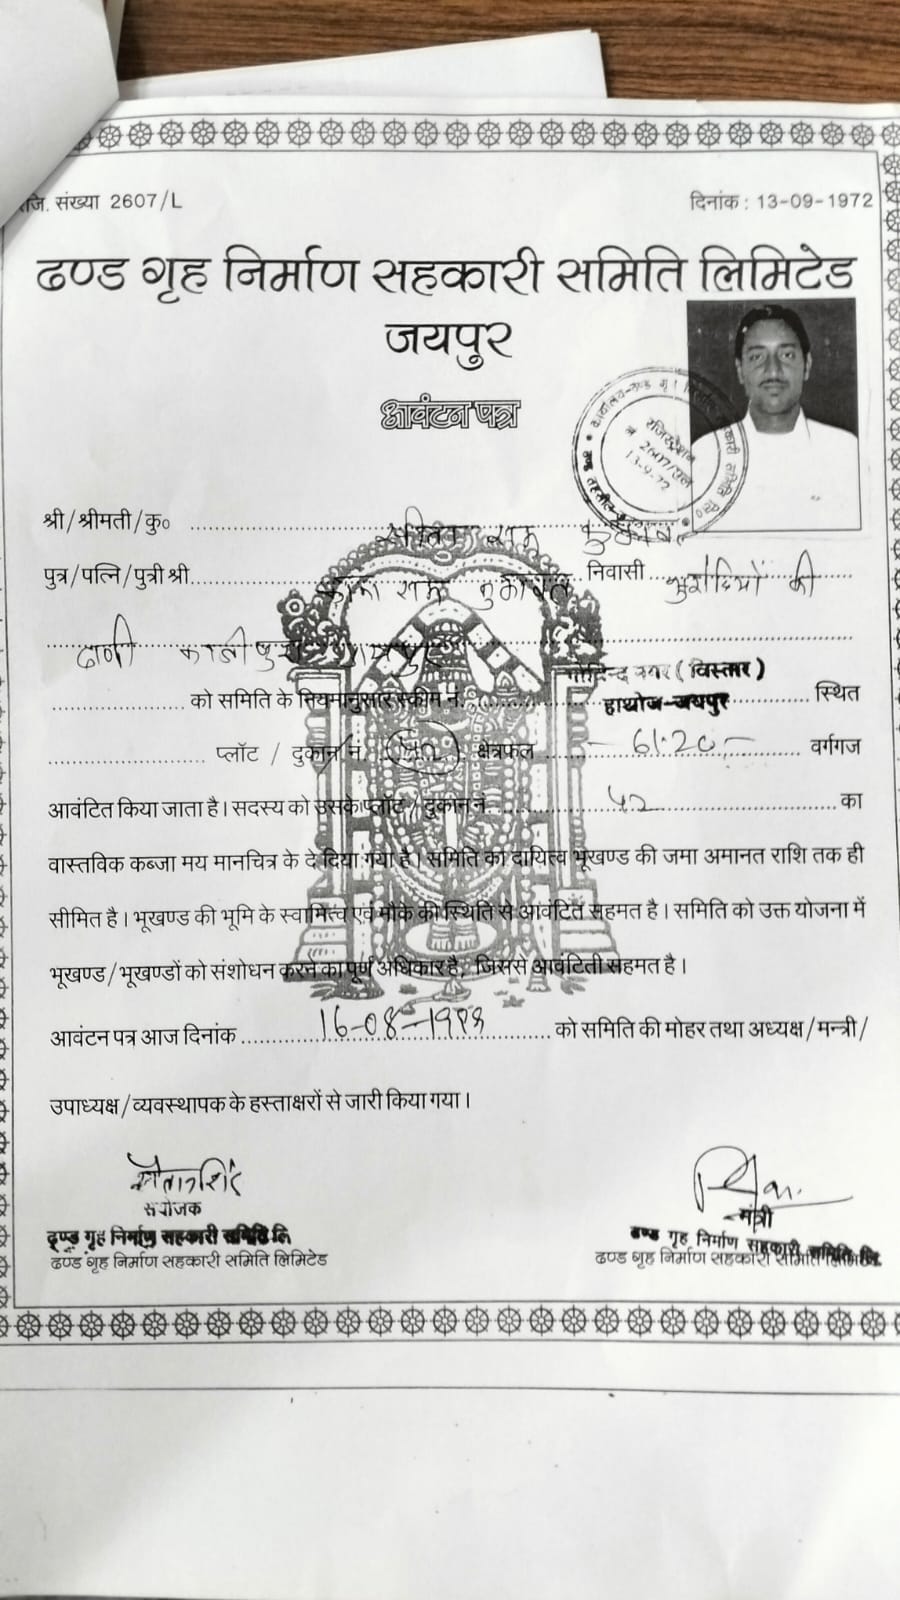 रजि. संख्या 2607/L
दिनांक : 13-09-1972
ढण्ड गृह निर्माण सहकारी समिति लिमिटेड
जयपुर
आवंटन पत्र
रजिस्ट्रेशन
नं 2607/एल
13-9-72
श्री/श्रीमती/कु०
पुत्र/पत्नि/पुत्री श्री निवासी की
ढाणी
को समिति के नियमानुसार स्कीम नं. गोविन्द नगर (विस्तार)
हाथोज-जयपुर स्थित
प्लॉट / दुकान नं. 52 क्षेत्रफल 61.20 वर्गगज
आवंटित किया जाता है। सदस्य को उसके प्लॉट / दुकान नं. 52 का
वास्तविक कब्जा मय मानचित्र के दे दिया गया है। समिति का दायित्व भूखण्ड की जमा अमानत राशि तक ही
सीमित है। भूखण्ड की भूमि के स्वामित्व एवं मौके की स्थिति से आवंटित सहमत है। समिति को उक्त योजना में
भूखण्ड/भूखण्डों को संशोधन करने का पूर्ण अधिकार है, जिससे आवंटिती सहमत है।
आवंटन पत्र आज दिनांक 16-08- को समिति की मोहर तथा अध्यक्ष/मन्त्री/
उपाध्यक्ष/व्यवस्थापक के हस्ताक्षरों से जारी किया गया।
संयोजक
ढण्ड गृह निर्माण सहकारी समिति लि
ढण्ड गृह निर्माण सहकारी समिति लिमिटेड
मंत्री
ढण्ड गृह निर्माण सहकारी समिति लि.
ढण्ड गृह निर्माण सहकारी समिति लिमिटेड